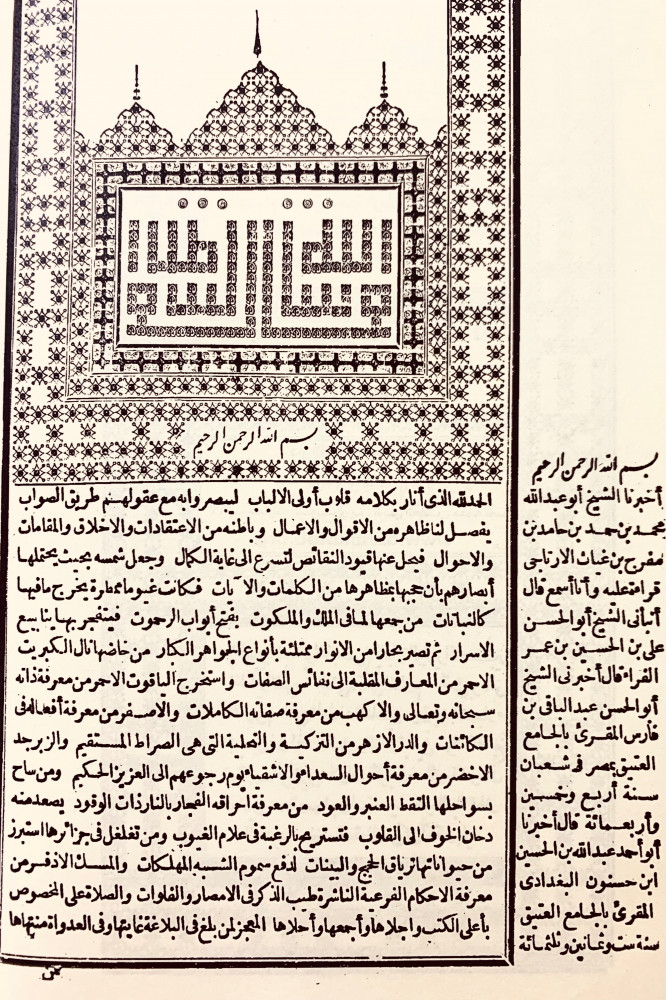 بسم الله الرحمن الرحيم
الحمد لله الذى أنار بكلامه قلوب أولى الالباب ليبصروا به مع عقولهم طريق الصواب
يفصل لنا ظاهره من الاقوال والاعمال وباطنه من الاعتقادات والاخلاق والمقامات
والاحوال فيحل عنها قيود النقائص لتسرع الى غاية الكمال وجعل شمسه بحيث يحتملها
أبصارهم بأن حجبها بمظاهرها من الكلمات والآيات فكانت غيوما ممطرة يخرج ما فيها
كالنباتات من جمعها لما فى الملك والملكوت بفتح أبواب الرحموت فيتفجر بها ينابيع
الاسرار ثم تصير بحارا من الانوار ممتلئة بأنواع الجواهر الكبار من خاضها نال الكبريت
الاحمر من المعارف المقلبة الى نفائس الصفات واستخرج الياقوت الاحمر من معرفة ذاته
سبحانه وتعالى والاكهب من معرفة صفاته الكاملات والاصفر من معرفة أفعاله فى
الكائنات والدر الازهر من التزكية والتحلية التى هى الصراط المستقيم والزبرجد
الاخضر من معرفة أحوال السعداء والاشقياء يوم رجوعهم الى العزيز الحكيم ومن ساح
بسواحلها التقط العنبر والعود من معرفة احراقه الفجار بالنار ذات الوقود يصعد منه
دخان الخوف الى القلوب فتستريح بالرغبة فى علام الغيوب ومن تغلغل فى جزائرها استبرز
من حيواناتها ترياق الحجج والبينات لدفع سموم الشبه المهلكات والمسك الاذفر من
معرفة الاحكام الفرعية الناشرة طيب الذكر فى الامصار والفلوات والصلاة على المخصوص
بأعلى الكتب واجلاها وأجمعها وأحلاها المعجز لمن بلغ فى البلاغة غايتها وفى العداوة منتهاها
بسم الله الرحمن الرحيم
أخبرنا الشيخ أبو عبد الله
محمد بن حمد بن حامد بن
مفرح بن غياث الارتاجى
قراءة عليه وأنا أسمع قال
أنبأنى الشيخ أبو الحسن
على بن الحسين بن عمر
الفراء قال أخبرنى الشيخ
أبو الحسن عبد الباقى بن
فارس المقرئ بالجامع
العتيق بمصر فى شعبان
سنة أربع وخمسين
وأربعمائة قال أخبرنا
أبو أحمد عبد الله بن الحسين
ابن حسنون البغدادى
المقرئ بالجامع العتيق
سنة ست وثمانين وثلثمائة